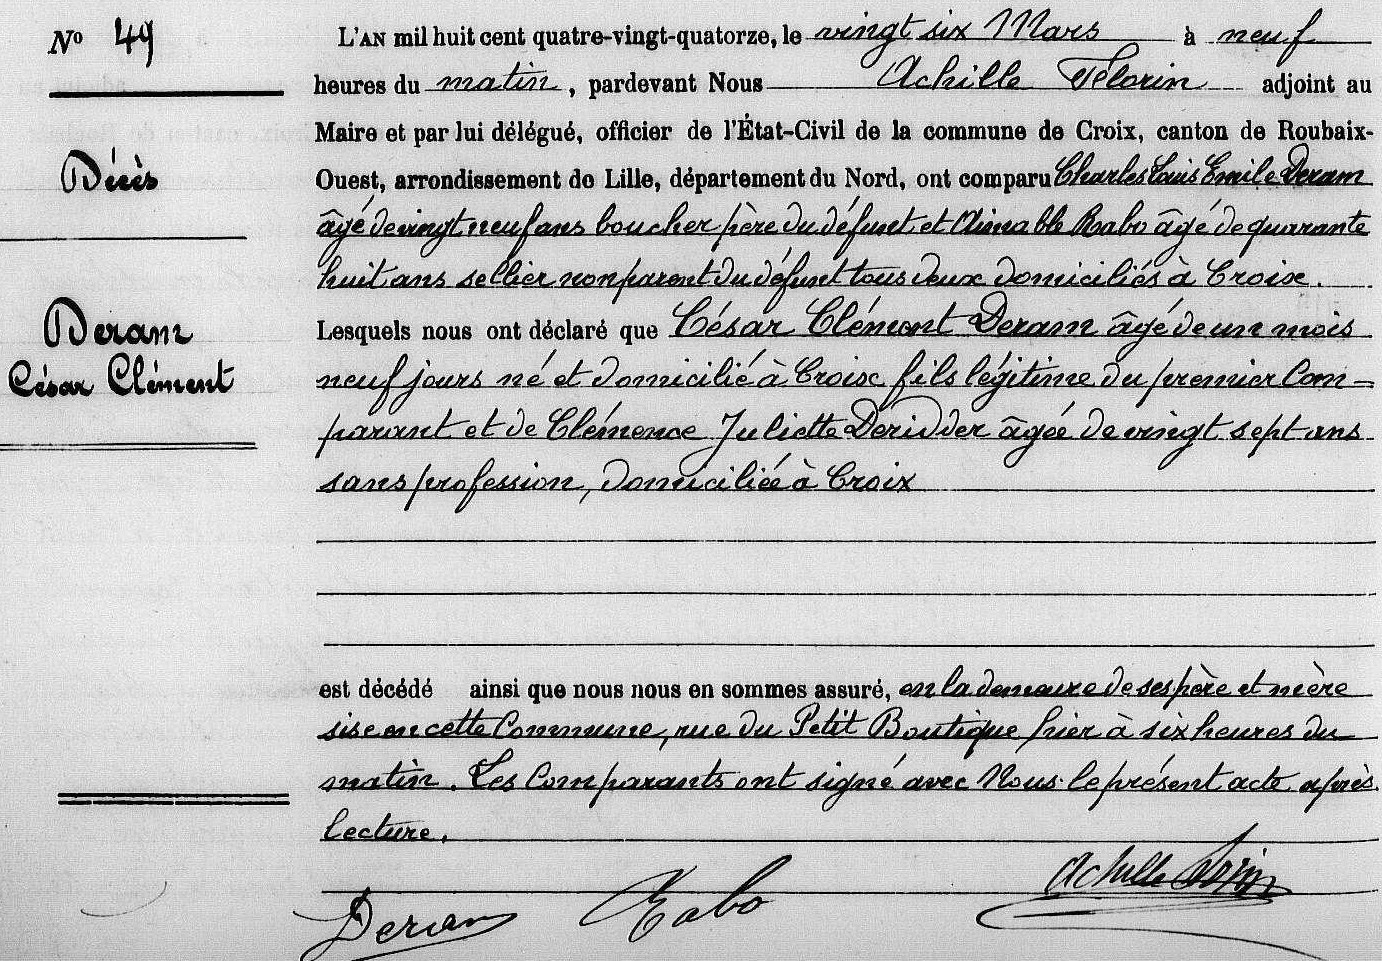 No 49
L'AN mil huit cent quatre-vingt-quatorze, le vingt six Mars à neuf
heures du matin, pardevant Nous Achille Florin adjoint au
Maire et par lui délégué, officier de l'État-Civil de la commune de Croix, canton de Roubaix-
Décès
Ouest, arrondissement de Lille, département du Nord, ont comparu Charles Louis Emile Deram
âgé de vingt neuf ans boucher père du défunt et Aimable Rabo âgé de quarante
huit ans sellier non parent du défunt tous deux domiciliés à Croix.
Deram
César Clément
Lesquels nous ont déclaré que César Clément Deram âgé de un mois
neuf jours né et domicilié à Croix fils légitime du premier Com=
parant et de Clémence Juliette Deridder âgée de vingt sept ans
sans profession, domiciliée à Croix
est décédé ainsi que nous nous en sommes assuré, en la demeure de ses père et mère
sise en cette Commune, rue du Petit Boutique hier à six heures du
matin. Les Comparants ont signé avec Nous le présent acte après
lecture.
Deram Rabo Achille Florin